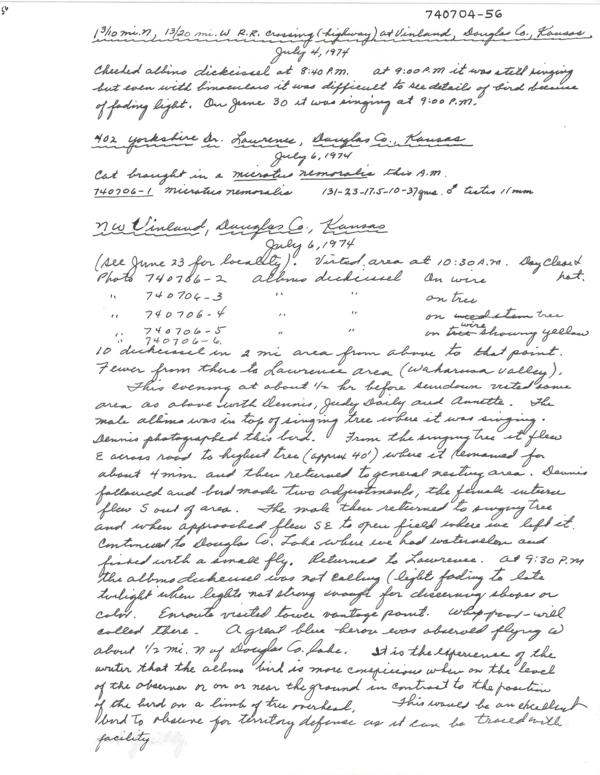 740704-56
1 3/10 mi. N, 1 3/20 mi. W R.R. crossing (highway) at Vinland, Douglas Co., Kansas.
July 4, 1974
Checked albino dickcissel at 8:40 P.M. at 9:00 P.M it was still singing
but even with binoculars it was difficult to see details of bird because
of fading light. On June 30 it was singing at 9:00 P.M.
402 Yorkshire Dr. Lawrence, Douglas Co., Kansas
July 6, 1974
Cat brought in a microtus nemoralis this A.M.
740706-1 microtus nemoralis 131-23-17.5-10-37gms. ♂ testis 11mm
NW Vinland, Douglas Co., Kansas
July 6, 1974
(See June 23 for locality). Visited area at 10:30 A.M. Day clear &
Photo 740706-2 albino dickcissel On wire hot.
" 740706-3 " " on tree
" 740706-4 " " on weed stem tree
" 740706-5 " " on tree wire showing yellow
" 740706-6.
10 dickcissel in 2 mi area from above to that point.
Fewer from there to Lawrence area (Wakarusa Valley).
This evening at about 1/2 hr before sundown visited same
area as above with Dennis, Judy Daily and Annette. The
male albino was in top of singing tree where it was singing.
Dennis photographed this bird. From the singing tree it flew
E across road to highest tree (approx 40') where it remained for
about 4 min. and then returned to general nesting area. Dennis
followed and bird made two adjustments, the female
flew S out of area. The male then returned to singing tree
and when approached flew SE to open field where we left it.
Continued to Douglas Co. Lake where we had watermelon and
fished with a small fly. Returned to Lawrence. at 9:30 P.M
the albino dickcissel was not calling (light fading to late
twilight when lights not strong enough for discerning shapes or
color. Enroute visited tower vantage point. Whip-poor-will
called there. A great blue heron was observed flying W
about 1/2 mi. N of Douglas Co. Lake. It is the experience of the
writer that the albino bird is more conspicuous when on the level
of the observer or on or near the ground in contrast to the position
of the bird on a limb of tree overhead. This would be an excellent
bird to observe for territory defense as it can be traced with
facility